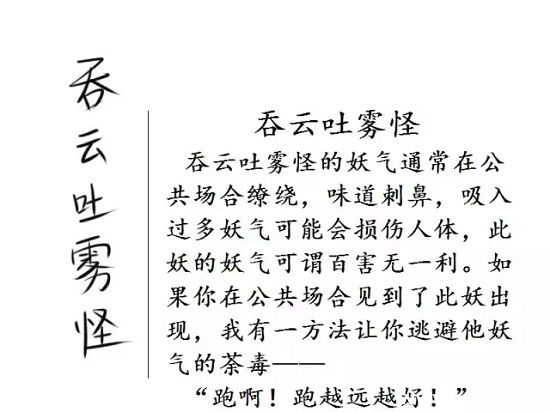 吞云吐雾怪
吞云吐雾怪
吞云吐雾怪的妖气通常在公
共场合缭绕，味道刺鼻，吸入
过多妖气可能会损伤人体，此
妖的妖气可谓百害无一利。如
果你在公共场合见到了此妖出
现，我有一方法让你逃避他妖
气的荼毒——
“跑啊！跑越远越好！”